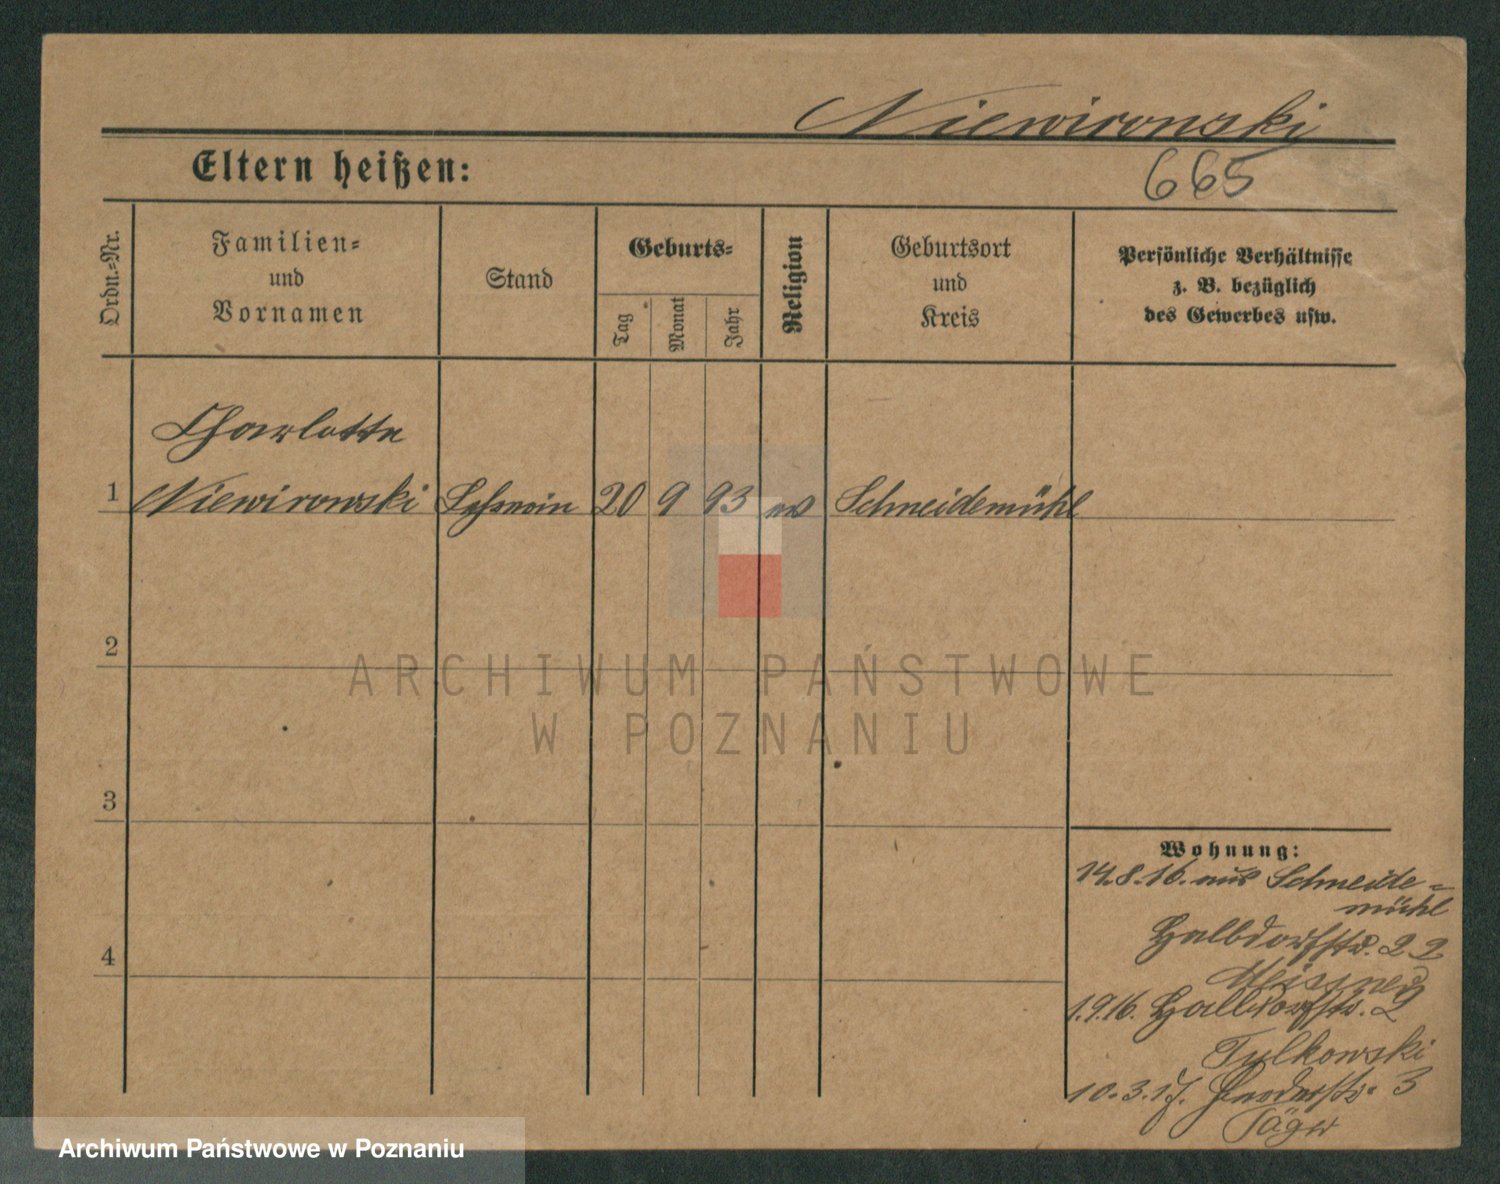 Niewirowski
665
Eltern heißen:
Ordn.=Nr.
Familien=
und
Vornamen
Stand
Geburts=
Tag
Monat
Jahr
Religion
Geburtsort
und
Kreis
Persönliche Verhältnisse
z. B. bezüglich
des Gewerbes usw.
Charlotte
1 Niewirowski 20 9 93 ev Schneidemühl
2
ARCHIWUM PAŃSTWOWE
W POZNANIU
3
4
Wohnung:
14.8.16. aus Schneide=
mühl
Halbdorfstr. 22
Meissner
1.9.16. Halbdorfstr. 2
Tulkowski
10.3.17. 3
Jäger
Archiwum Państwowe w Poznaniu